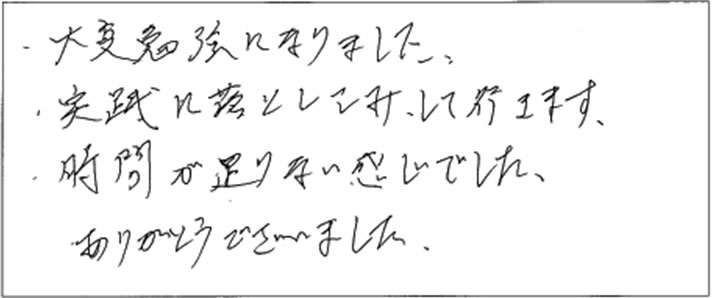 ・大変勉強になりました。
・実践に落としこみ、して行きます。
・時間が足りない感じでした、
ありがとうございました。